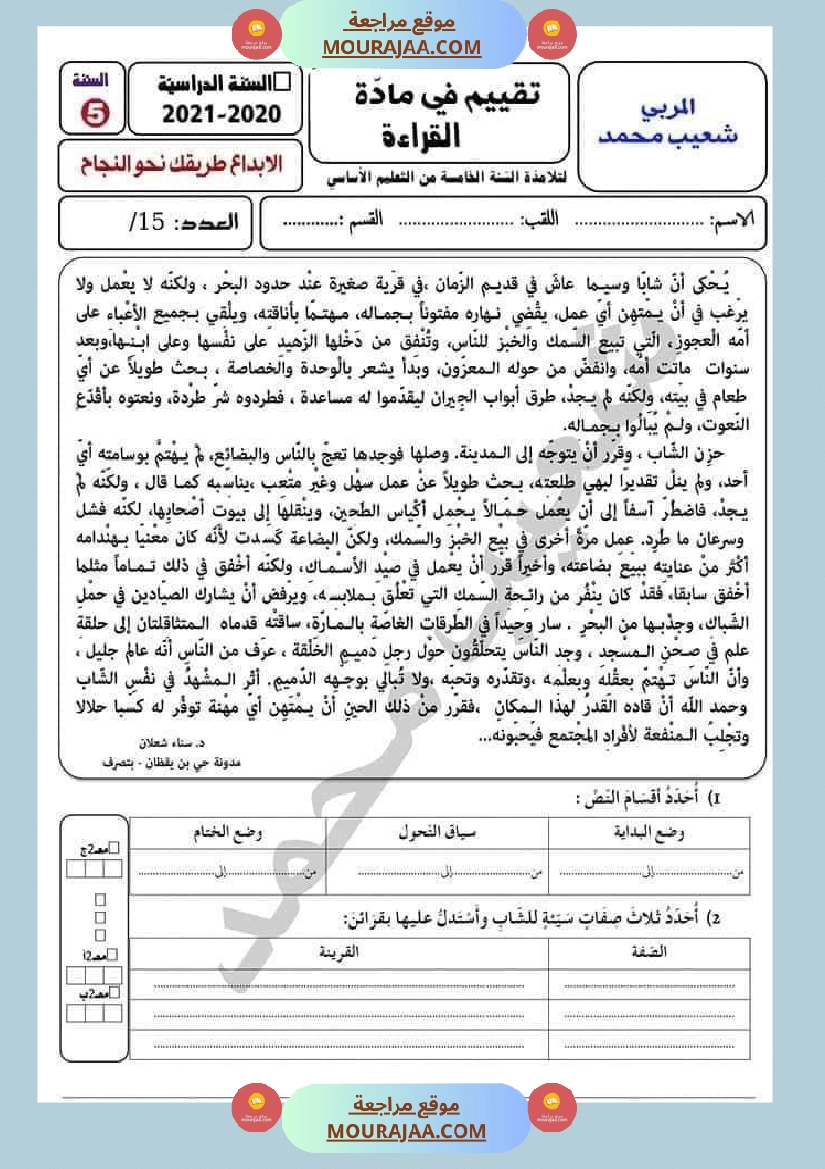 موقع مراجعة
MOURAJAA.COM
المربي
شعيب محمد
تقييم في مادّة
القراءة
لتلامذة السّنة الخامسة من التعليم الأساسي
السنة الدراسيّة
2021-2020
السنة
5
الابداع طريقك نحو النجاح
الاسم: ........................... اللقب: ........................ القسم :............
العدد: 15/
يُحْكى أنّ شابًا وسيما عاشَ في قديم الزّمان ،في قرْية صغيرة عنْد حدود البحْر ، ولكنّه لا يعْمل ولا
يرْغب في أنْ يـمتهن أيّ عمل، يقْضي نـهاره مفتوناً بـجماله، مـهتمّا بأناقته، ويلْقي بـجميع الأعْباء على
أمّه الْعجوز، الّتي تبيع السّمك والخبْز للنّاس، وتُنْفق من دَخْلها الزّهيد على نفْسها وعلى ابنـها،وبعد
سنوات ماتت أمّه، وانفضّ من حوله الـمعزّون، وبدأ يشعر بالْوحدة والخصاصة ، بـحث طويلاً عن أيّ
طعام في بيته، ولكنّه لم يـجدْ، طرق أبواب الجيران ليقدّموا له مساعدة ، فطردوه شرّ طرْدة، ونعتوه بأقْذع
النّعوت، ولـمْ يُبَالُوا بـجماله.
حزِن الشّاب ، وقرّر أنْ يتوجّه إلى الـمدينة. وصلها فوجدها تعجّ بالنّاس والبضائع، لمْ يـهْتمّ بوسامته أيّ
أحد، ولم ينلْ تقديرًا لبهي طلعته، بـحث طويلاً عنْ عمل سهْل وغيْر متْعب ،يناسبه كمـا قال ، ولكنّه لمْ
يـجدْ، فاضطرّ آسفاً إلى أن يعْمل حـمّـالاً يـحمل أكْياس الطّحين، وينْقلهَا إلى بيوت أصْحابها، لكنّه فشل
وسرعان ما طُرِد. عمل مرّةً أخرى في بيْع الخبْز والسّمك، ولكنّ البضاعة كَسدت لأنّه كان معْنيّا بـهنْدامه
أكْثر منْ عنايته ببيْع بضاعته، وأخيراً قرّر أنْ يعمل في صيْد الأسـْماك، ولكنّه أخْفق في ذلك تـمـاماً مثلما
أخْفق سابقا، فقدْ كان ينْفُر من رائـحة السمك التي تعْلق بـملابسـه، ويرْفض أنْ يشارك الصيّادين في حمْل
الشّباك، وجذْبـها من البحْر . سار وحيداً في الطّرقات الغاصّة بالـمارّة، ساقتْه قدماه الـمتثاقلتان إلى حلقة
علم في صـحْن الـمسْجد ، وجد النّاسَ يتحلّقُون حوْل رجلٍ دَميـمِ الخَلْقة ، عرَف من النّاسِ أنّه عالم جليل ،
وأنّ النّاسَ تـهْتمّ بعقْله وبعلْمه ،وتقدّره وتحبه ،ولا تُبالي بوجـهه الدّميمِ. أثّر الـمشْهدُ في نفْسِ الشّاب
وحمد الله أنْ قاده القدرُ لهذا الـمكانِ ،فقرّر منْ ذلك الحينِ أنْ يـمْتهن أيّ مهْنة توفّر له كسبا حلالا
وتجْلِبُ الـمنْفعة لأفْراد المجْتمع فيُحبّونه...
د. سناء شعلان
مدونة حي بن يقظان - بتصرف
1) أُحَدّدُ أقسَامَ النَصّ :
وضع البداية سياق التحول وضع الختام
من..............................إلى.............................. من..............................إلى.............................. من..............................إلى..............................
2) أُحَدّدُ ثلاثَ صِفَاتٍ سَيّئةٍ للشّابِ وأَسْتدلُ عليها بقرَائنَ:
الصّفة القرينة
مع2ج
مع2أ
مع2ب
موقع مراجعة
MOURAJAA.COM